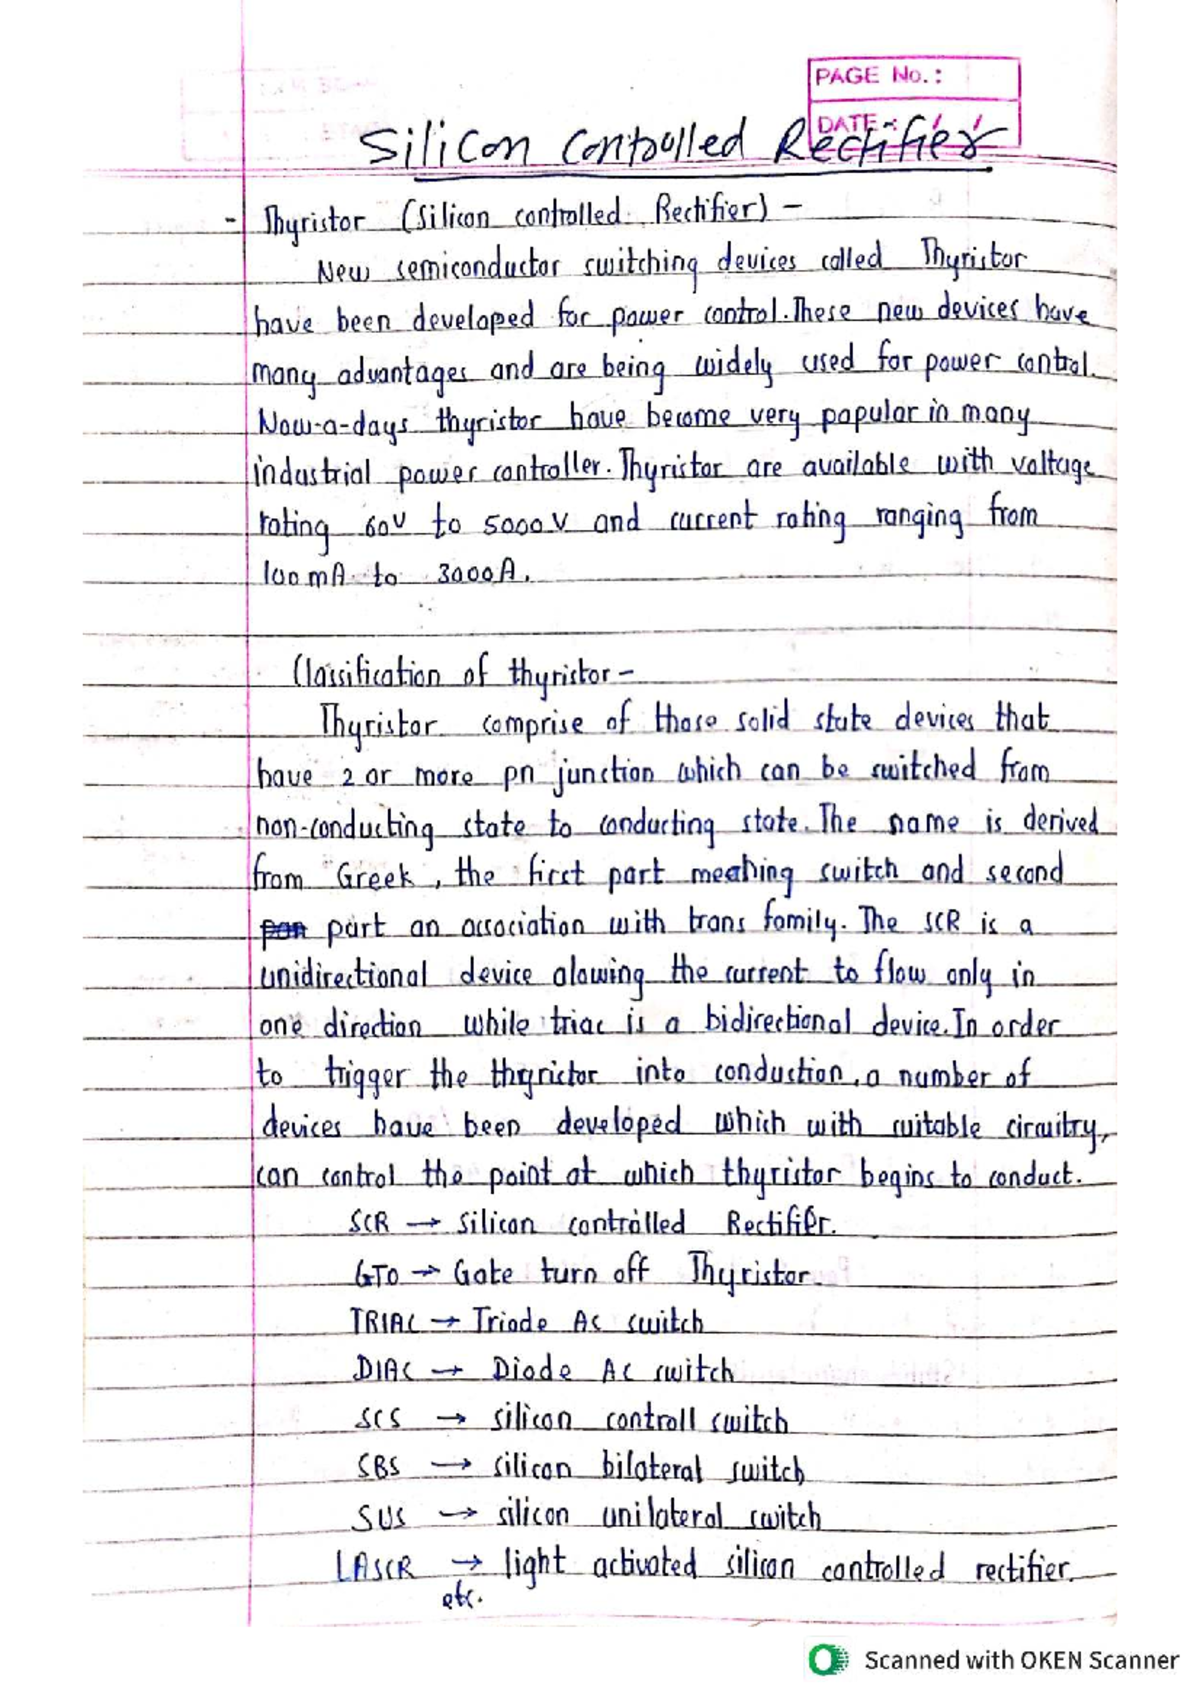 PAGE No.:
DATE: / /
Silicon Controlled Rectifier
- Thyristor (Silicon controlled Rectifier) -
New semiconductor switching devices called Thyristor
have been developed for power control. These new devices have
many advantages and are being widely used for power control.
Now-a-days thyristor have become very popular in many
industrial power controller. Thyristor are available with voltage
rating 60V to 5000V and current rating ranging from
100mA to 3000A.
Classification of thyristor -
Thyristor comprise of those solid state devices that
have 2 or more pn junction which can be switched from
non-conducting state to conducting state. The name is derived
from Greek, the first part meahing switch and second
part an association with trans family. The SCR is a
unidirectional device alowing the current to flow only in
one direction while triac is a bidirectional device. In order
to trigger the thyristor into conduction, a number of
devices have been developed which with suitable circuitry,
can control the point at which thyristor begins to conduct.
SCR → Silicon controlled Rectifier.
GTO → Gate turn off Thyristor.
TRIAC → Triode AC switch
DIAC → Diode AC switch
SCS → silicon controll switch
SBS → silicon bilateral switch
SUS → silicon unilateral switch
LASCR → light activated silicon controlled rectifier.
etc.
Scanned with OKEN Scanner